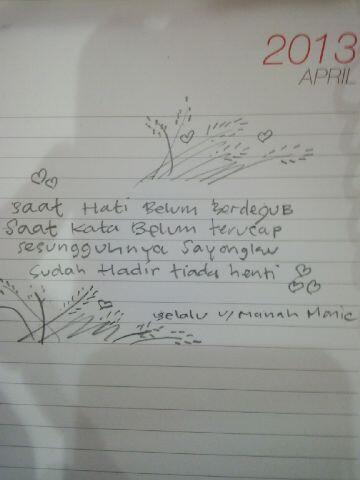 2013
APRIL
saat Hati Belum Berdegub
Saat Kata Belum terucap
sesungguhnya Sayangku
Sudah Hadir tiada henti
Selalu u/ Mamah Manic